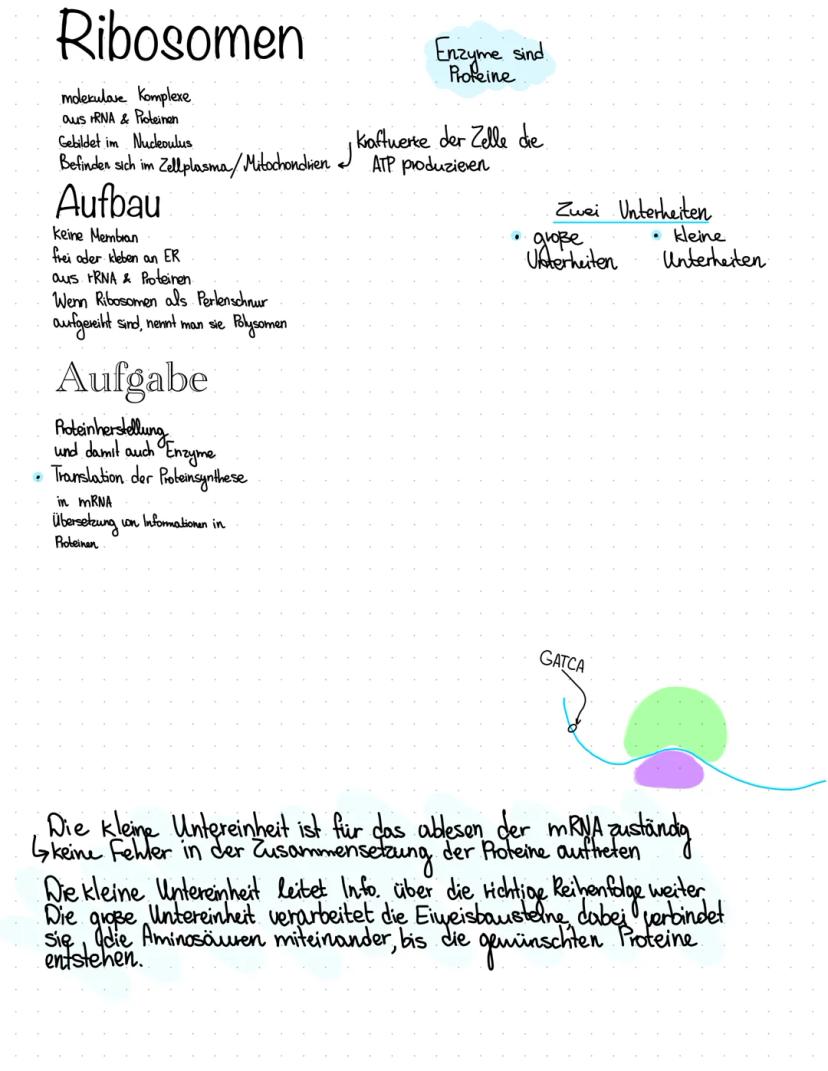 Ribosomen
Enzyme sind
Proteine
molekulare Komplexe
aus rRNA & Proteinen
Gebildet im Nucleoulus
Befinden sich im Zellplasma/Mitochondrien
Kraftwerke der Zelle die
ATP produzieren
Aufbau
keine Membran
frei oder kleben an ER
aus rRNA & Proteinen
Wenn Ribosomen als Perlenschnur
aufgereiht sind, nennt man sie Polysomen
Zwei Unterheiten
• große
Unterheiten
• kleine
Unterheiten
Aufgabe
Proteinherstellung
und damit auch Enzyme
• Translation der Proteinsynthese
in mRNA
Übersetzung von Informationen in
Proteinen
GATCA
Die kleine Untereinheit ist für das ablesen der mRNA zuständig
↳ keine Fehler in der Zusammensetzung der Proteine auftreten
Die kleine Untereinheit leitet Info. über die richtige Reihenfolge weiter
Die große Untereinheit verarbeitet die Eiweisbausteine, dabei verbindet
sie die Aminosäuren miteinander, bis die gewünschten Proteine
entstehen.